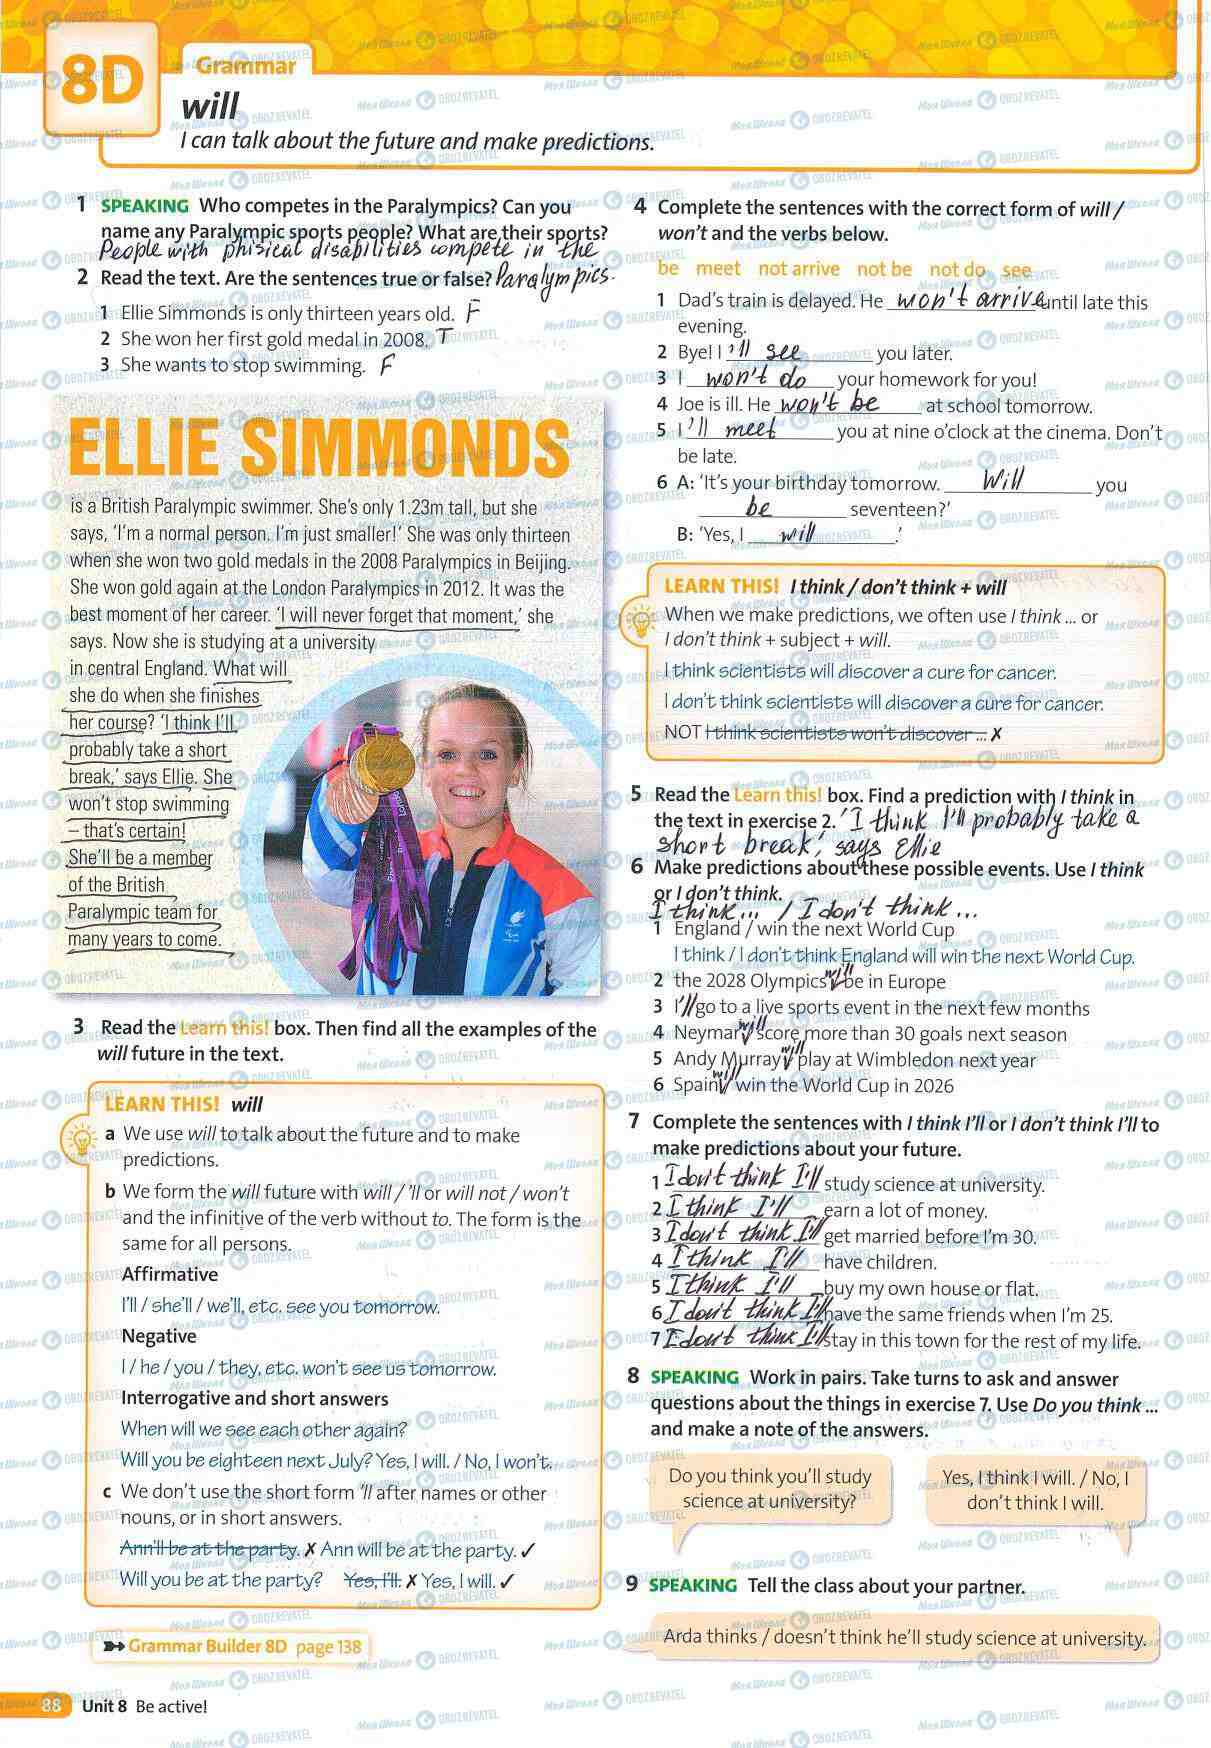 8D
Grammar
will
I can talk about the future and make predictions.
1 SPEAKING Who competes in the Paralympics? Can you
name any Paralympic sports people? What are their sports?
People with phisical disabilities compete in the
Paralympics.
2 Read the text. Are the sentences true or false?
1 Ellie Simmonds is only thirteen years old. F
2 She won her first gold medal in 2008. T
3 She wants to stop swimming. F
ELLIE SIMMONDS
is a British Paralympic swimmer. She's only 1.23m tall, but she
says, 'I'm a normal person. I'm just smaller!' She was only thirteen
when she won two gold medals in the 2008 Paralympics in Beijing.
She won gold again at the London Paralympics in 2012. It was the
best moment of her career. 'I will never forget that moment,' she
says. Now she is studying at a university
in central England. What will
she do when she finishes
her course? 'I think I'll
probably take a short
break,' says Ellie. She
won't stop swimming
– that's certain!
She'll be a member
of the British
Paralympic team for
many years to come.
3 Read the Learn this! box. Then find all the examples of the
will future in the text.
LEARN THIS! will
a We use will to talk about the future and to make
predictions.
b We form the will future with will / 'll or will not / won't
and the infinitive of the verb without to. The form is the
same for all persons.
Affirmative
I'll / she'll / we'll, etc. see you tomorrow.
Negative
I / he / you / they, etc. won't see us tomorrow.
Interrogative and short answers
When will we see each other again?
Will you be eighteen next July? Yes, I will. / No, I won't.
c We don't use the short form 'll after names or other
nouns, or in short answers.
Ann'll be at the party. ✗ Ann will be at the party. ✓
Will you be at the party? Yes, I'll. ✗ Yes, I will. ✓
Grammar Builder 8D page 138
88 Unit 8 Be active!
4 Complete the sentences with the correct form of will /
won't and the verbs below.
be meet not arrive not be not do see
1 Dad's train is delayed. He won't arrive until late this
evening.
2 Bye! I 'll see you later.
3 I won't do your homework for you!
4 Joe is ill. He won't be at school tomorrow.
5 I 'll meet you at nine o'clock at the cinema. Don't
be late.
6 A: 'It's your birthday tomorrow. Will you
be seventeen?'
B: 'Yes, I will.'
LEARN THIS! I think / don't think + will
When we make predictions, we often use I think ... or
I don't think + subject + will.
I think scientists will discover a cure for cancer.
I don't think scientists will discover a cure for cancer.
NOT I think scientists won't discover ... ✗
5 Read the Learn this! box. Find a prediction with I think in
the text in exercise 2. 'I think I'll probably take a
short break,' says Ellie
6 Make predictions about these possible events. Use I think
or I don't think.
I think... / I don't think...
1 England / win the next World Cup
I think / I don't think England will win the next World Cup.
2 the 2028 Olympics will be in Europe
3 I'll go to a live sports event in the next few months
4 Neymar will score more than 30 goals next season
5 Andy Murray will play at Wimbledon next year
6 Spain will win the World Cup in 2026
7 Complete the sentences with I think I'll or I don't think I'll to
make predictions about your future.
1 I don't think I'll study science at university.
2 I think I'll earn a lot of money.
3 I don't think I'll get married before I'm 30.
4 I think I'll have children.
5 I think I'll buy my own house or flat.
6 I don't think I'll have the same friends when I'm 25.
7 I don't think I'll stay in this town for the rest of my life.
8 SPEAKING Work in pairs. Take turns to ask and answer
questions about the things in exercise 7. Use Do you think ...
and make a note of the answers.
Do you think you'll study
science at university?
Yes, I think I will. / No, I
don't think I will.
9 SPEAKING Tell the class about your partner.
Arda thinks / doesn't think he'll study science at university.